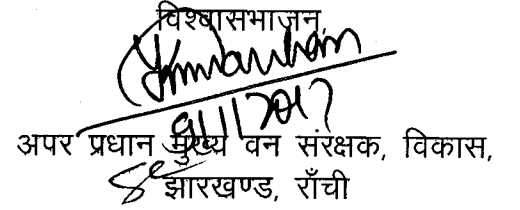 विश्वासभाजन,
9/1/2017
अपर प्रधान मुख्य वन संरक्षक, विकास,
झारखण्ड, राँची